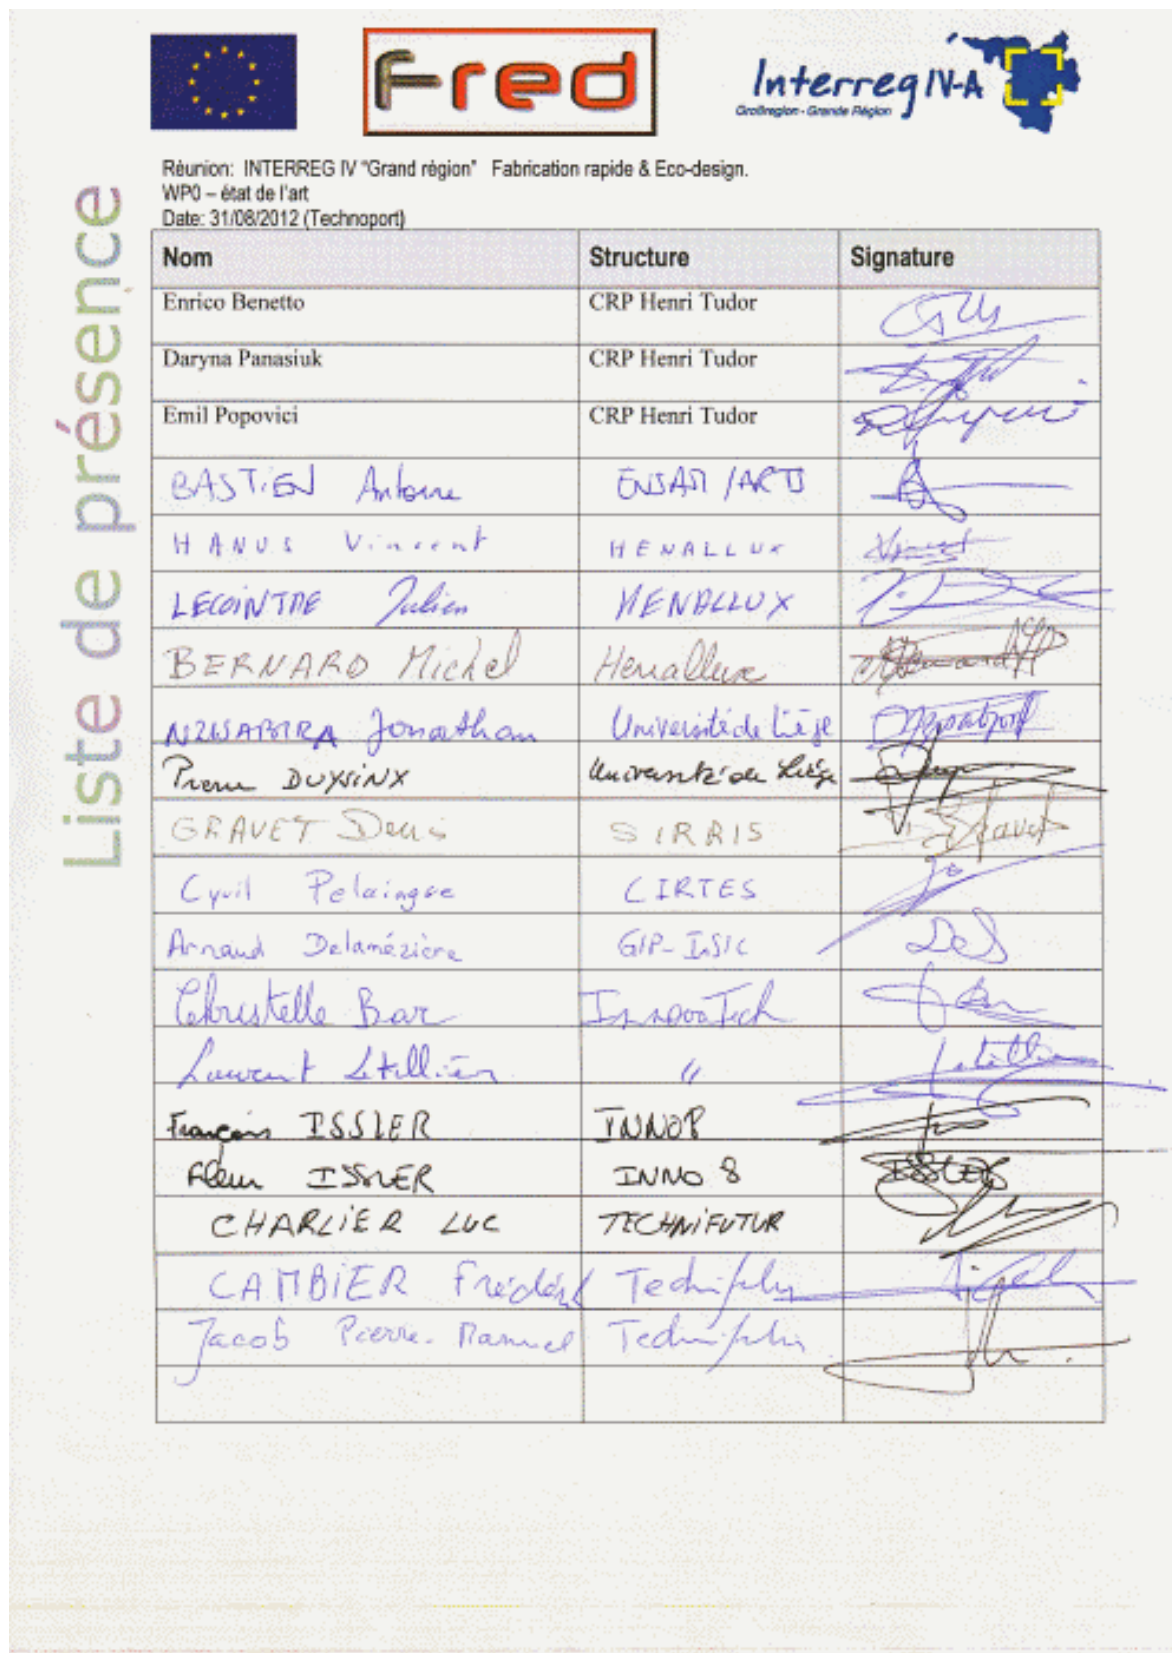 Fred
Interreg IV-A
Großregion - Grande Région
Réunion: INTERREG IV "Grand région" Fabrication rapide & Eco-design.
WP0 – état de l'art
Date: 31/08/2012 (Technoport)
Liste de présence
Nom Structure Signature
Enrico Benetto CRP Henri Tudor
Daryna Panasiuk CRP Henri Tudor
Emil Popovici CRP Henri Tudor
BASTIEN Antoine ENSAM /ARTS
HANUS Vincent HENALLUX
LECOINTRE Julien HENALLUX
BERNARD Michel Henallux
NZISABIRA Jonathan Université de Liège
Pierre DUYSINX Université de Liège
GRAVET Denis SIRRIS
Cyril Pelaingre CIRTES
Arnaud Delamézière GIP-InSIC
Christelle Bar InnovaTech
Laurent Letellier "
François ISSLER INNO8
Fleur ISSLER INNO 8 ISSLER
CHARLIER LUC TECHNIFUTUR
CAMBIER Frédéric Technifutur
Jacob Pierre-Manuel Technifutur